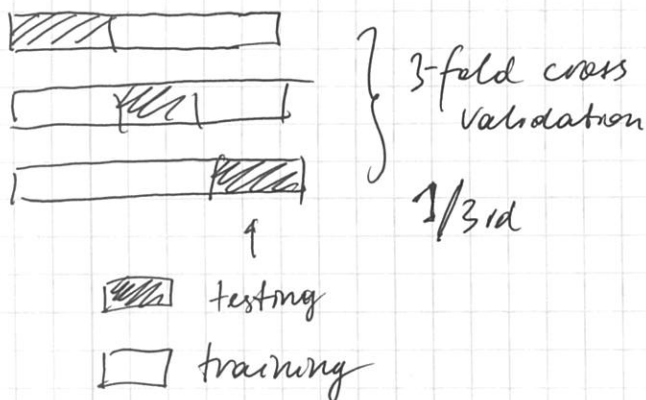 3-fold cross
validation
1/3rd
testing
training